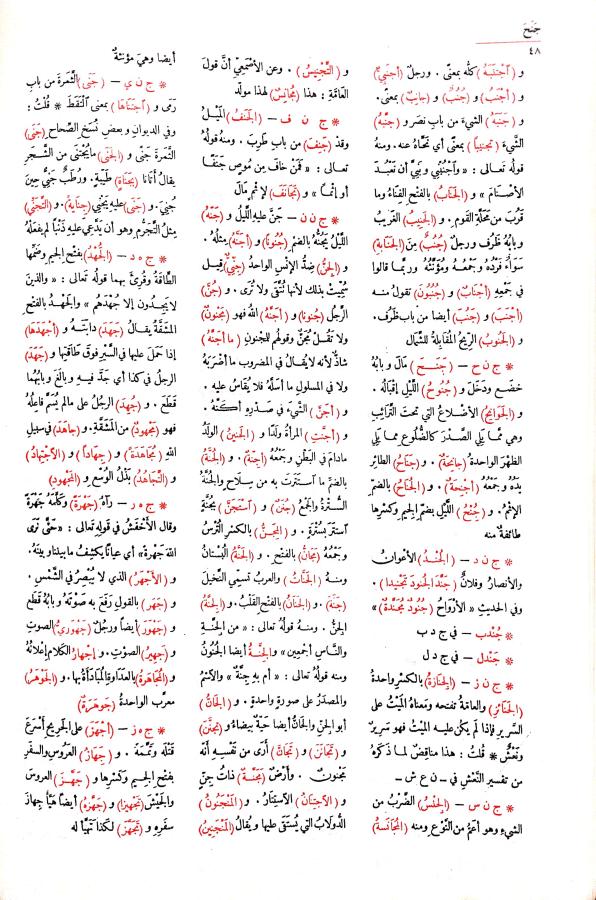 جنح
٤٨
و (أَجْنَبَهُ) كُلُّه بمعنًى. ورجلٌ (أَجْنَبِيٌّ)
و (أَجْنَبُ) و (جُنُبٌ) و (جانِبٌ) بمعنًى.
و (جَنَبَهُ) الشيءَ من باب نصَر و (جَنَّبَهُ)
الشَّيءَ (تَجْنيباً) بمعنًى أي نَحَّاهُ عنه. ومنه
قولُه تعالى: «وَاجْنُبْنِي وَبَنِيَّ أَنْ نَعْبُدَ
الأَصْنامَ» و (الجَنَابُ) بالفتح الفِنَاءُ وما
قَرُبَ من مَحَلَّةِ القوم. و (الجَنِيبُ) الغريبُ
وبابُهُ ظَرُف ورجلٌ (جُنُبٌ) مِنَ (الجَنَابةِ)
سَواءٌ فَرْدُه وجَمْعُهُ ومُؤَنَّثُهُ وربَّما قالوا
في جَمْعِهِ (أَجْنابٌ) و (جُنُبُونَ) تقولُ منه
(أَجْنَبَ) و (جَنُبَ) أيضا من باب ظَرُف.
و (الجَنُوبُ) الرِّيحُ المُقَابِلةُ للشَّمَالِ
* ج ن ح – (جَنَحَ) مَالَ وبابُهُ
خضَع ودَخَل و (جُنُوحُ) اللَّيلِ إقبَالُهُ.
و (الجَوانِحُ) الأضْلاعُ التي تحتَ التَّرائِبِ
وهي ممَّا يَلِي الصَّدْرَ كالضُّلُوعِ مما يَلِي
الظَهْرَ الواحدةُ (جانِحَةٌ). و (جَنَاحُ) الطائِرِ
يَدُهُ وجَمْعُهُ (أَجْنِحَةٌ). و (الجُنَاحُ) بالضم
الإِثمُ. و (جُنْحُ) اللَّيلِ بضمِّ الجيم وكَسْرِها
طائفةٌ منه
* ج ن د – (الجُنْدُ) الأَعوانُ
والأنصارُ وفلانٌ (جَنَّدَ الجُنُودَ تَجْنِيدا).
وفي الحديث «الأَرْوَاحُ (جُنُودٌ مُجَنَّدةٌ)»
* جُنْدَب – في ج د ب
* جَنْدَل – في ج د ل
* ج ن ز – (الجِنَازَةُ) بالكَسْرِ واحدةُ
(الجَنَائِزِ) والعامَّةُ تفتَحه ومَعناهُ الميِّتُ على
السَّريرِ فإذا لم يكُن عليه الميِّتُ فهو سَرِيرٌ
ونَعْشٌ * قُلتُ: هذا مناقِضٌ لما ذَكَرَهُ
من تفسير النَّعْشِ في – ن ع ش –
* ج ن س – (الجِنْسُ) الضَّرْبُ من
الشيءِ وهو أعَمُّ من النَّوْع ومنه (المُجَانَسَةُ)
و (التَّجْنِيسُ). وعن الأصْمَعِيّ أنَّ قولَ
العَامَّةِ: هذا (مُجَانِسٌ) لهذا مولَّد
* ج ن ف – (الجَنَفُ) المَيْلُ
وقد (جَنِفَ) من باب طَرِب. ومنه قولُهُ
تعالى: «فَمَنْ خافَ مِنْ مُوصٍ جَنَفًا
أو إثْمًا» و (تَجَانَفَ) لإثْمٍ مَالَ
* ج ن ن – جَنَّ عليه اللَّيلُ و (جَنَّهُ)
اللَّيْلُ يَجُنُّهُ بالضمّ (جُنُونا) و (أَجَنَّهُ) مِثلُهُ.
و (الجِنُّ) ضِدُّ الإنسِ الواحدُ (جِنِّيٌّ) قيلَ
سُمِّيَتْ بذلك لأنها تُتَّقَى ولا تُرَى. و (جُنَّ)
الرَّجُلُ (جُنُونا) و (أَجَنَّهُ) اللهُ فهو (مَجْنُونٌ)
ولا تَقُلْ مُجَنٌّ وقولُهم للمَجْنونِ (ما أَجَنَّهُ)
شاذٌّ لأنه لا يُقالُ في المَضروبِ ما أَضْرَبَهُ
ولا في المسلولِ ما أَسَلَّهُ فلا يُقاسُ عليه.
و (أَجَنَّ) الشَّيءَ في صَدْرِهِ أكَنَّهُ.
و (أَجَنَّتِ) المرأةُ ولَدًا و (الجَنينُ) الولَدُ
مادامَ في البَطْنِ وجَمْعُهُ (أَجِنَّةٌ). و (الجُنَّةُ)
بالضمِّ ما اسْتَتَرْتَ به من سِلاحٍ والجُنَّةُ
السُّترةُ والجَمْعُ (جُنَنٌ) و (اسْتَجَنَّ) بجُنَّةٍ
اسْتَتَر بسُتْرةٍ. و (المِجَنُّ) بالكسر التُّرْسُ
وجمعُهُ (مَجَانُّ) بالفتح. و (الجَنَّةُ) البُسْتانُ
ومنه (الجَنَّاتُ) والعربُ تسمِّي النَّخِيلَ
(جَنَّةً). و (الجَنَانُ) بالفتح القَلْبُ. و (الجِنَّةُ)
الجِنُّ. ومنه قولُهُ تعالى: «مِنَ الجِنَّةِ
والنَّاسِ أجمَعينَ» و(الجِنَّةُ) أيضا الجُنُونُ.
ومنه قولُه تعالى: «أَمْ بِهِ جِنَّةٌ» والاسْمُ
والمَصْدَرُ على صورةٍ واحدةٍ. و (الجَانُّ)
أبو الجِنِّ والجَانُّ أيضا حَيَّةٌ بيضاءُ و (تَجَنَّنَ)
و (تَجَانَنَ) و (تَجَانَّ) أَرَى من نَفْسِهِ أنَّه
مَجْنونٌ. وأَرْضٌ (مَجَنَّةٌ) ذاتُ جِنٍّ
و (الاجْتِنَانُ) الاستِتَارُ. و (المَنْجَنُونُ)
الدُّولابُ التي يُسْتَقَى عليها ويُقالُ (المَنْجَنِينُ)
أيضا وهيَ مؤنثةٌ
* ج ن ي – (جَنَى) الثَّمرةَ من بابِ
رَمَى و (اجْتَنَاهَا) بمعنى التَقَطَ * قُلتُ:
وفي الدِّيوانِ وبعضِ نُسَخِ الصَّحاح (جَنَى)
الثَّمَرةَ جَنًى و (الجَنَى) ما يُجْتَنَى من الشَّجَرِ
يقالُ أتانا (بِجَنَاةٍ) طَيِّبةٍ. ورُطَبٌ جَنِيٌّ حينَ
جُنِيَ. و (جَنَى) عليه يَجْنِي (جِنَايةً). و (التَّجَنِّي)
مِثلُ التَّجَرُّمِ وهو أن يَدَّعِيَ عليه ذَنْبًا لم يفعَلْهُ
* ج ه د – (الجُهْدُ) بفتح الجيم وضَمِّها
الطَّاقَةُ وقُرِئَ بهما قولُه تعالى: «والذينَ
لا يَجِدُونَ إلا جُهْدَهُمْ» والجَهْدُ بالفتح
المَشَقَّةُ يقالُ (جَهَدَ) دابتَه و (أَجْهَدَها)
إذا حَمَلَ عليها في السَّيْرِ فوقَ طَاقَتِها و (جَهَدَ)
الرجلُ في كذا أي جَدَّ فيه وبالَغَ وبابُهما
قَطَع. و (جُهِدَ) الرجُلُ على مالم يُسَمَّ فاعِلُهُ
فهو (مَجْهودٌ) من المَشَقَّةِ. و (جاهَدَ) في سبيل
اللهِ (مُجَاهَدَةً) و (جِهَاداً) و (الاجْتِهَادُ)
و (التَّجَاهُدُ) بَذْلُ الوُسْعِ و (المَجْهودِ)
* ج ه ر – رآهُ (جَهْرَةً) وكَلَّمَهُ جَهْرَةً
وقال الأخْفَشُ في قولِه تعالى: «حَتَّى نَرَى
اللهَ جَهْرةً» أي عِياناً يَكشِفُ ما بيننا وبينَهُ.
و (الأَجْهَرُ) الذي لا يُبْصِرُ في الشَّمْسِ.
و (جَهَرَ) بالقول رَفَعَ به صَوْتَهُ وبابُهُ قَطَع
و (جَهْوَرَ) أيضاً ورجُلٌ (جَهْوَرِيُّ) الصوتِ
و (جَهِيرُ) الصَّوتِ. و (إجْهارُ) الكلامِ إعلانُهُ
و (المُجَاهَرةُ) بالعداوة المُبَادَأةُ بها. و (الجَوْهَرُ)
معرب الواحدةُ (جَوْهَرةٌ)
* ج ه ز – (أَجْهَزَ) على الجَريحِ أَسْرَعَ
قَتْلَهُ وتَمَّمَهُ. و (جِهَازُ) العَرُوسِ والسَّفَرِ
بفتح الجيم وكَسْرِها و (جَهَّزَ) العَروسَ
والجَيْشَ (تَجْهِيزا) و (جَهَّزَهُ) أيضاً هَيَّأَ جِهازَ
سفَرِهِ و (تَجَهَّزَ) لكذا تَهَيَّأَ له